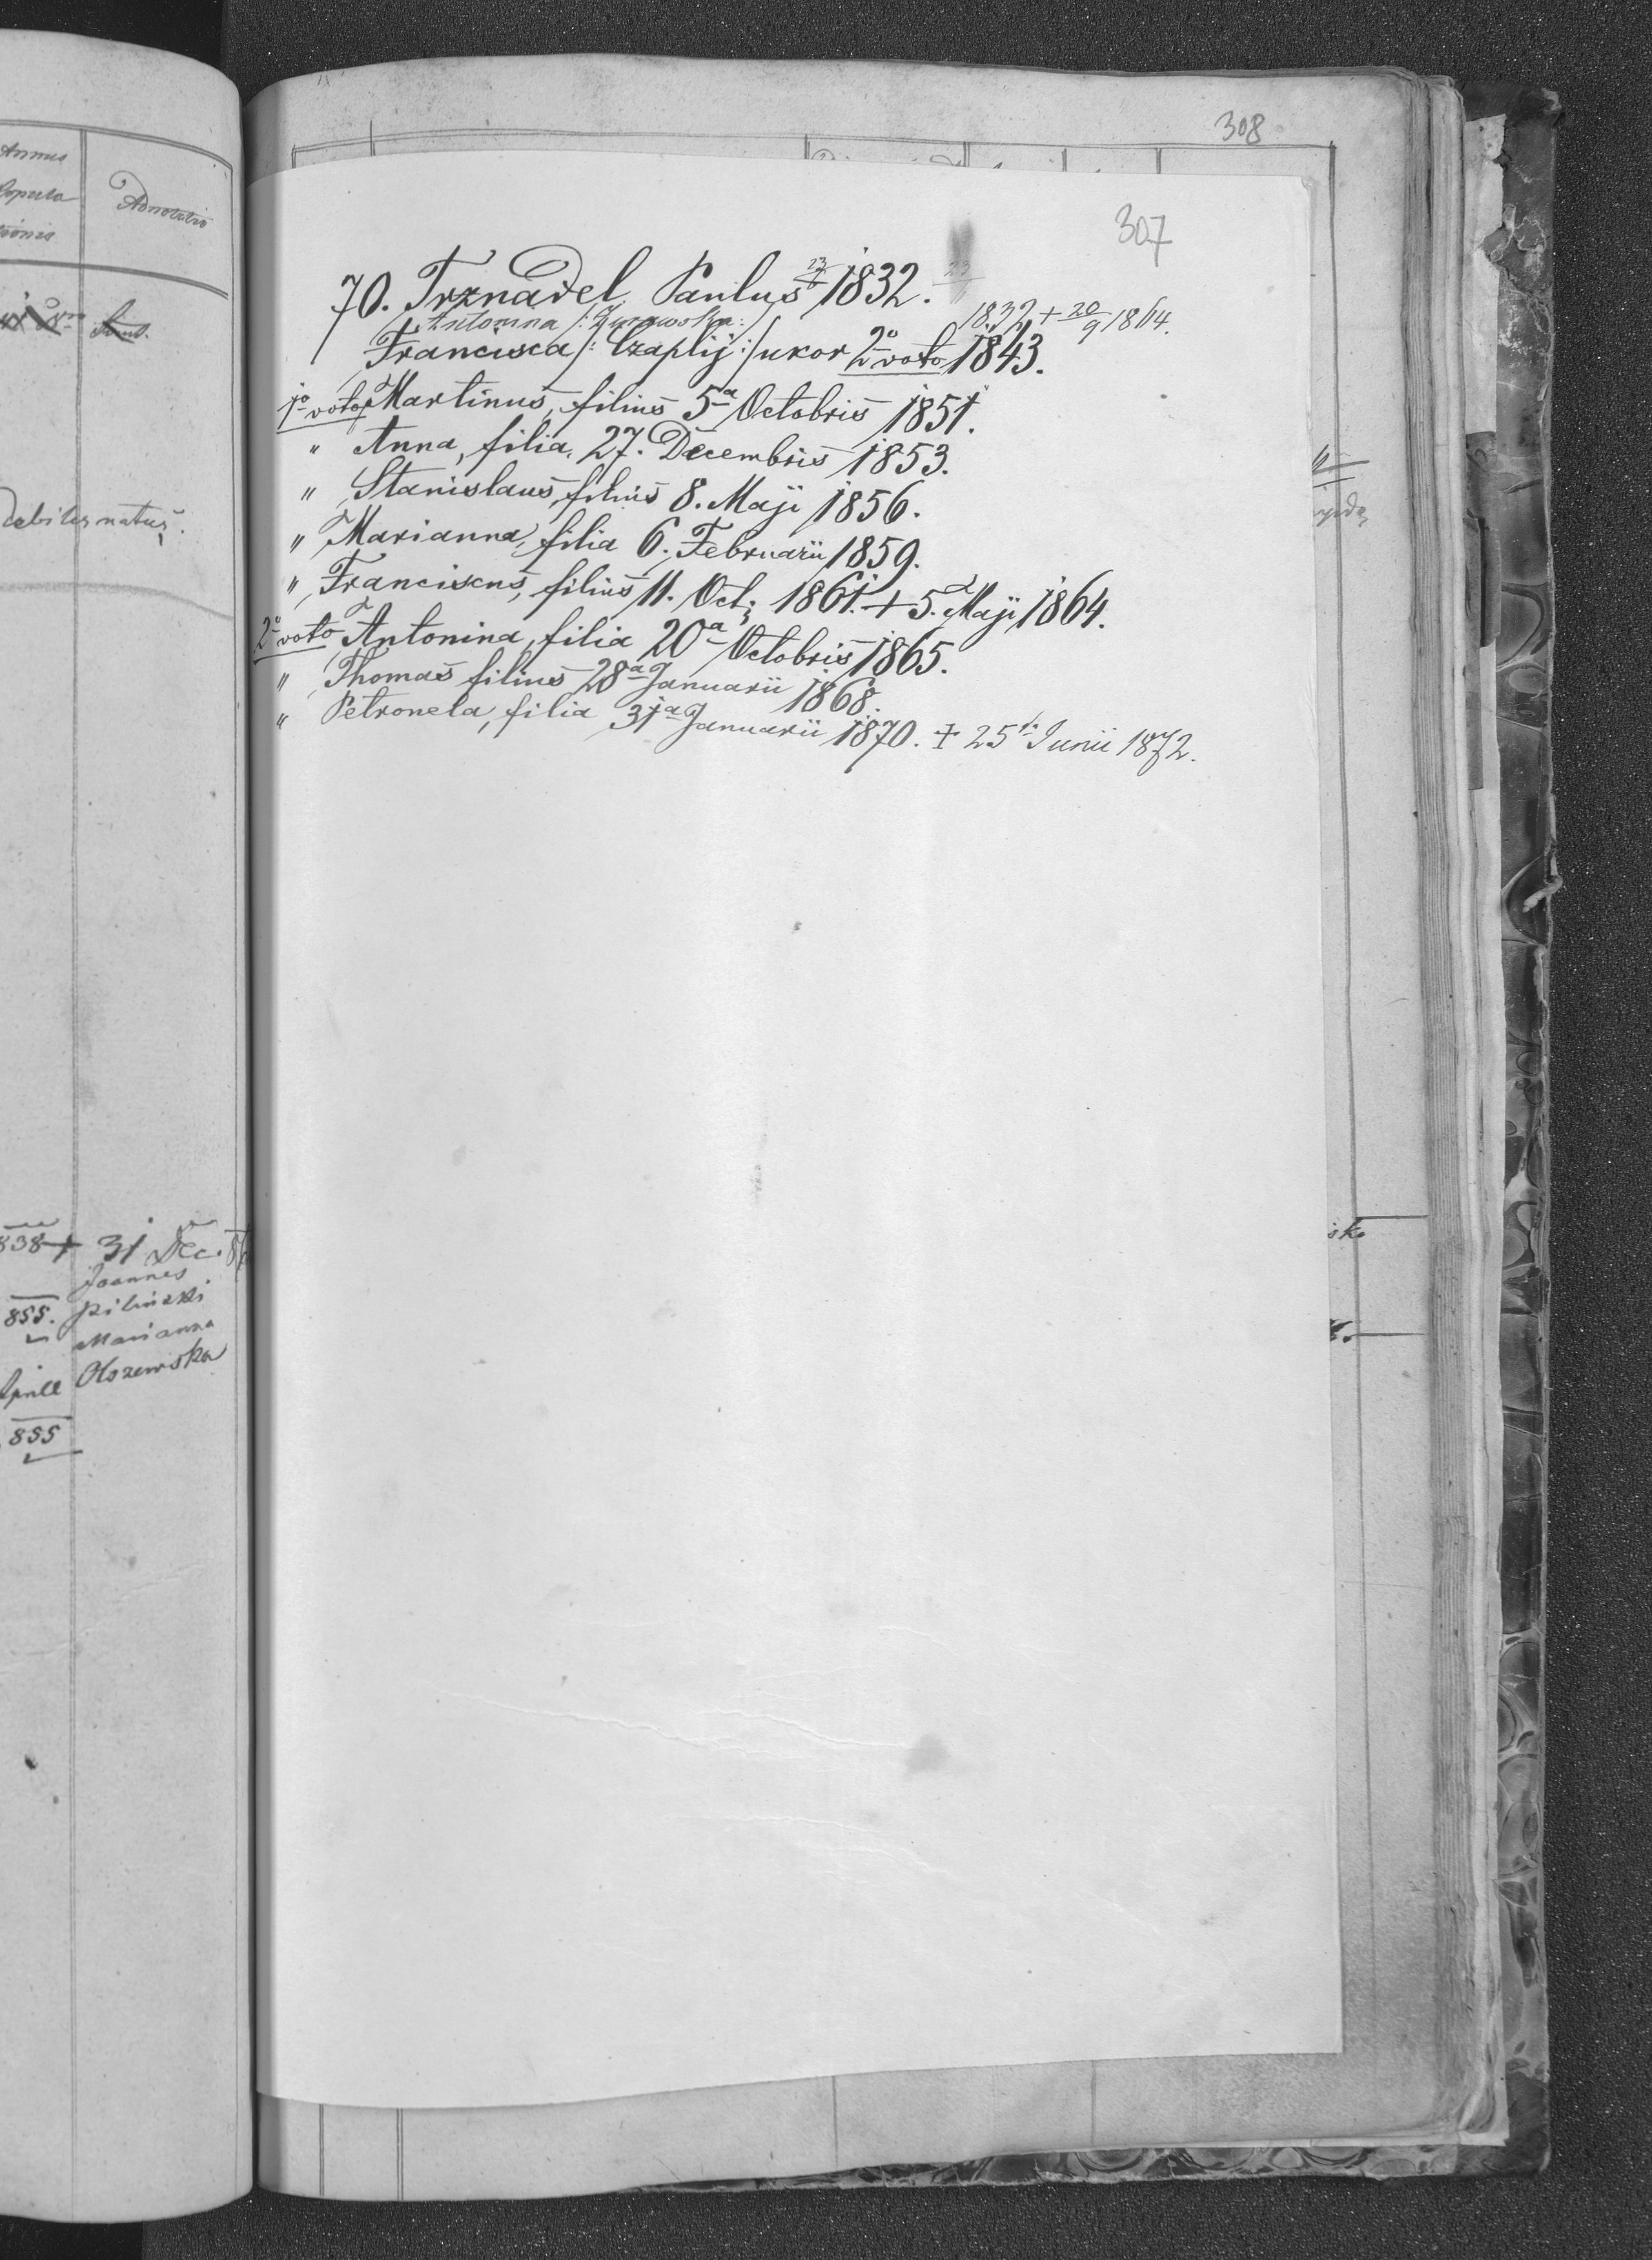 Annus
Copula
tionis
Adnotatio
debiles natus.
838 + 31 Dec.
Joannes
855. Piliński
Marianna
Aprill Olszewska
855
308
307
70. Trznadel Paulus 23/1 1832.
Antonina /: Żurawska :/ 1832 + 20/9 1864.
Francisca /: Czaplij :/ uxor 2o voto 1843.
1o voto Martinus, filius 5a Octobris 1851.
" Anna, filia, 27. Decembris 1853.
" Stanislaus, filius 8. Maji 1856.
" Marianna, filia 6. Februarii 1859.
" Franciscus, filius 11. Oct; 1861. + 5. Maji 1864.
2o voto Antonina, filia 20a Octobris 1865.
" Thomas filius 28a Januarii 1868.
" Petronela, filia 31a Januarii 1870. + 25a Junii 1872.